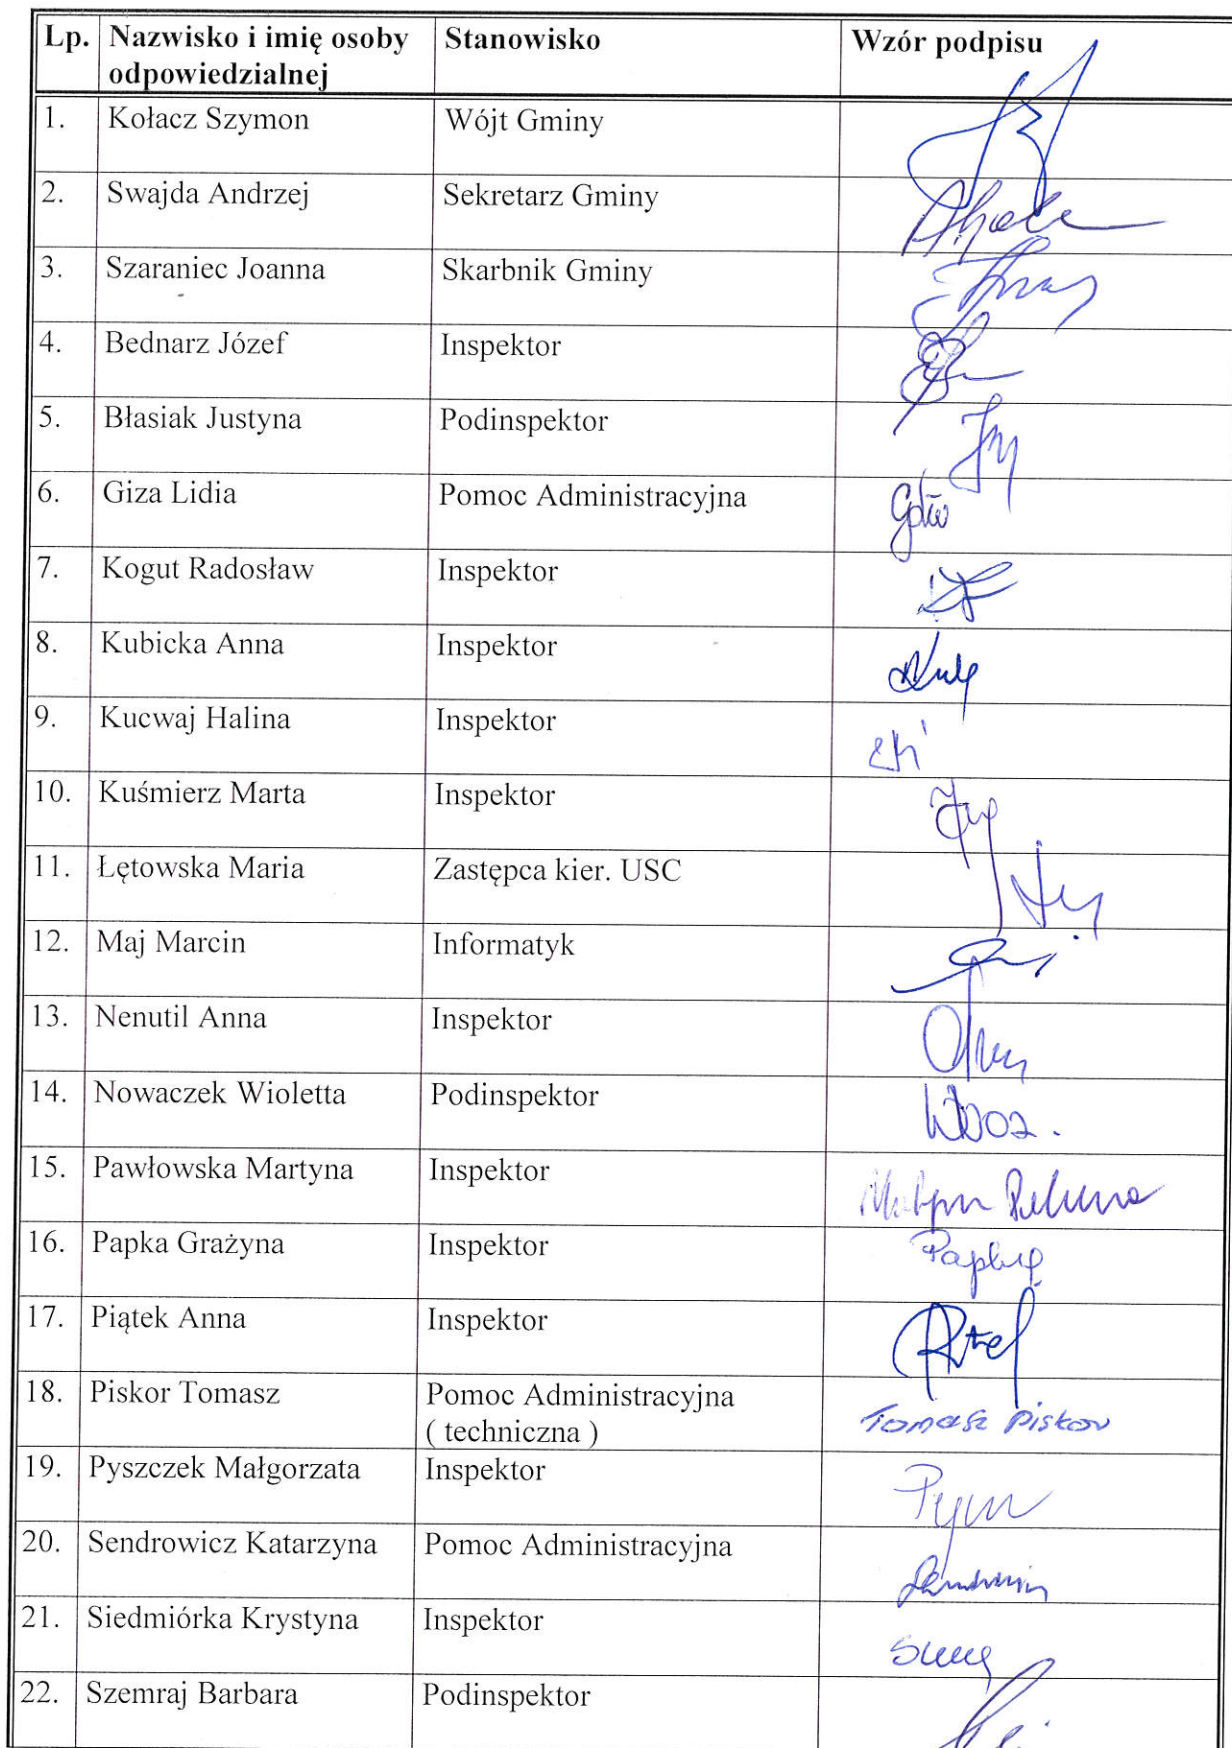 Lp. Nazwisko i imię osoby odpowiedzialnej Stanowisko Wzór podpisu
1. Kołacz Szymon Wójt Gminy
2. Swajda Andrzej Sekretarz Gminy
3. Szaraniec Joanna Skarbnik Gminy
4. Bednarz Józef Inspektor
5. Błasiak Justyna Podinspektor
6. Giza Lidia Pomoc Administracyjna
7. Kogut Radosław Inspektor
8. Kubicka Anna Inspektor
9. Kucwaj Halina Inspektor
10. Kuśmierz Marta Inspektor
11. Łętowska Maria Zastępca kier. USC
12. Maj Marcin Informatyk
13. Nenutil Anna Inspektor
14. Nowaczek Wioletta Podinspektor
15. Pawłowska Martyna Inspektor
16. Papka Grażyna Inspektor
17. Piątek Anna Inspektor
18. Piskor Tomasz Pomoc Administracyjna ( techniczna ) Tomasz Piskor
19. Pyszczek Małgorzata Inspektor
20. Sendrowicz Katarzyna Pomoc Administracyjna
21. Siedmiórka Krystyna Inspektor
22. Szemraj Barbara Podinspektor